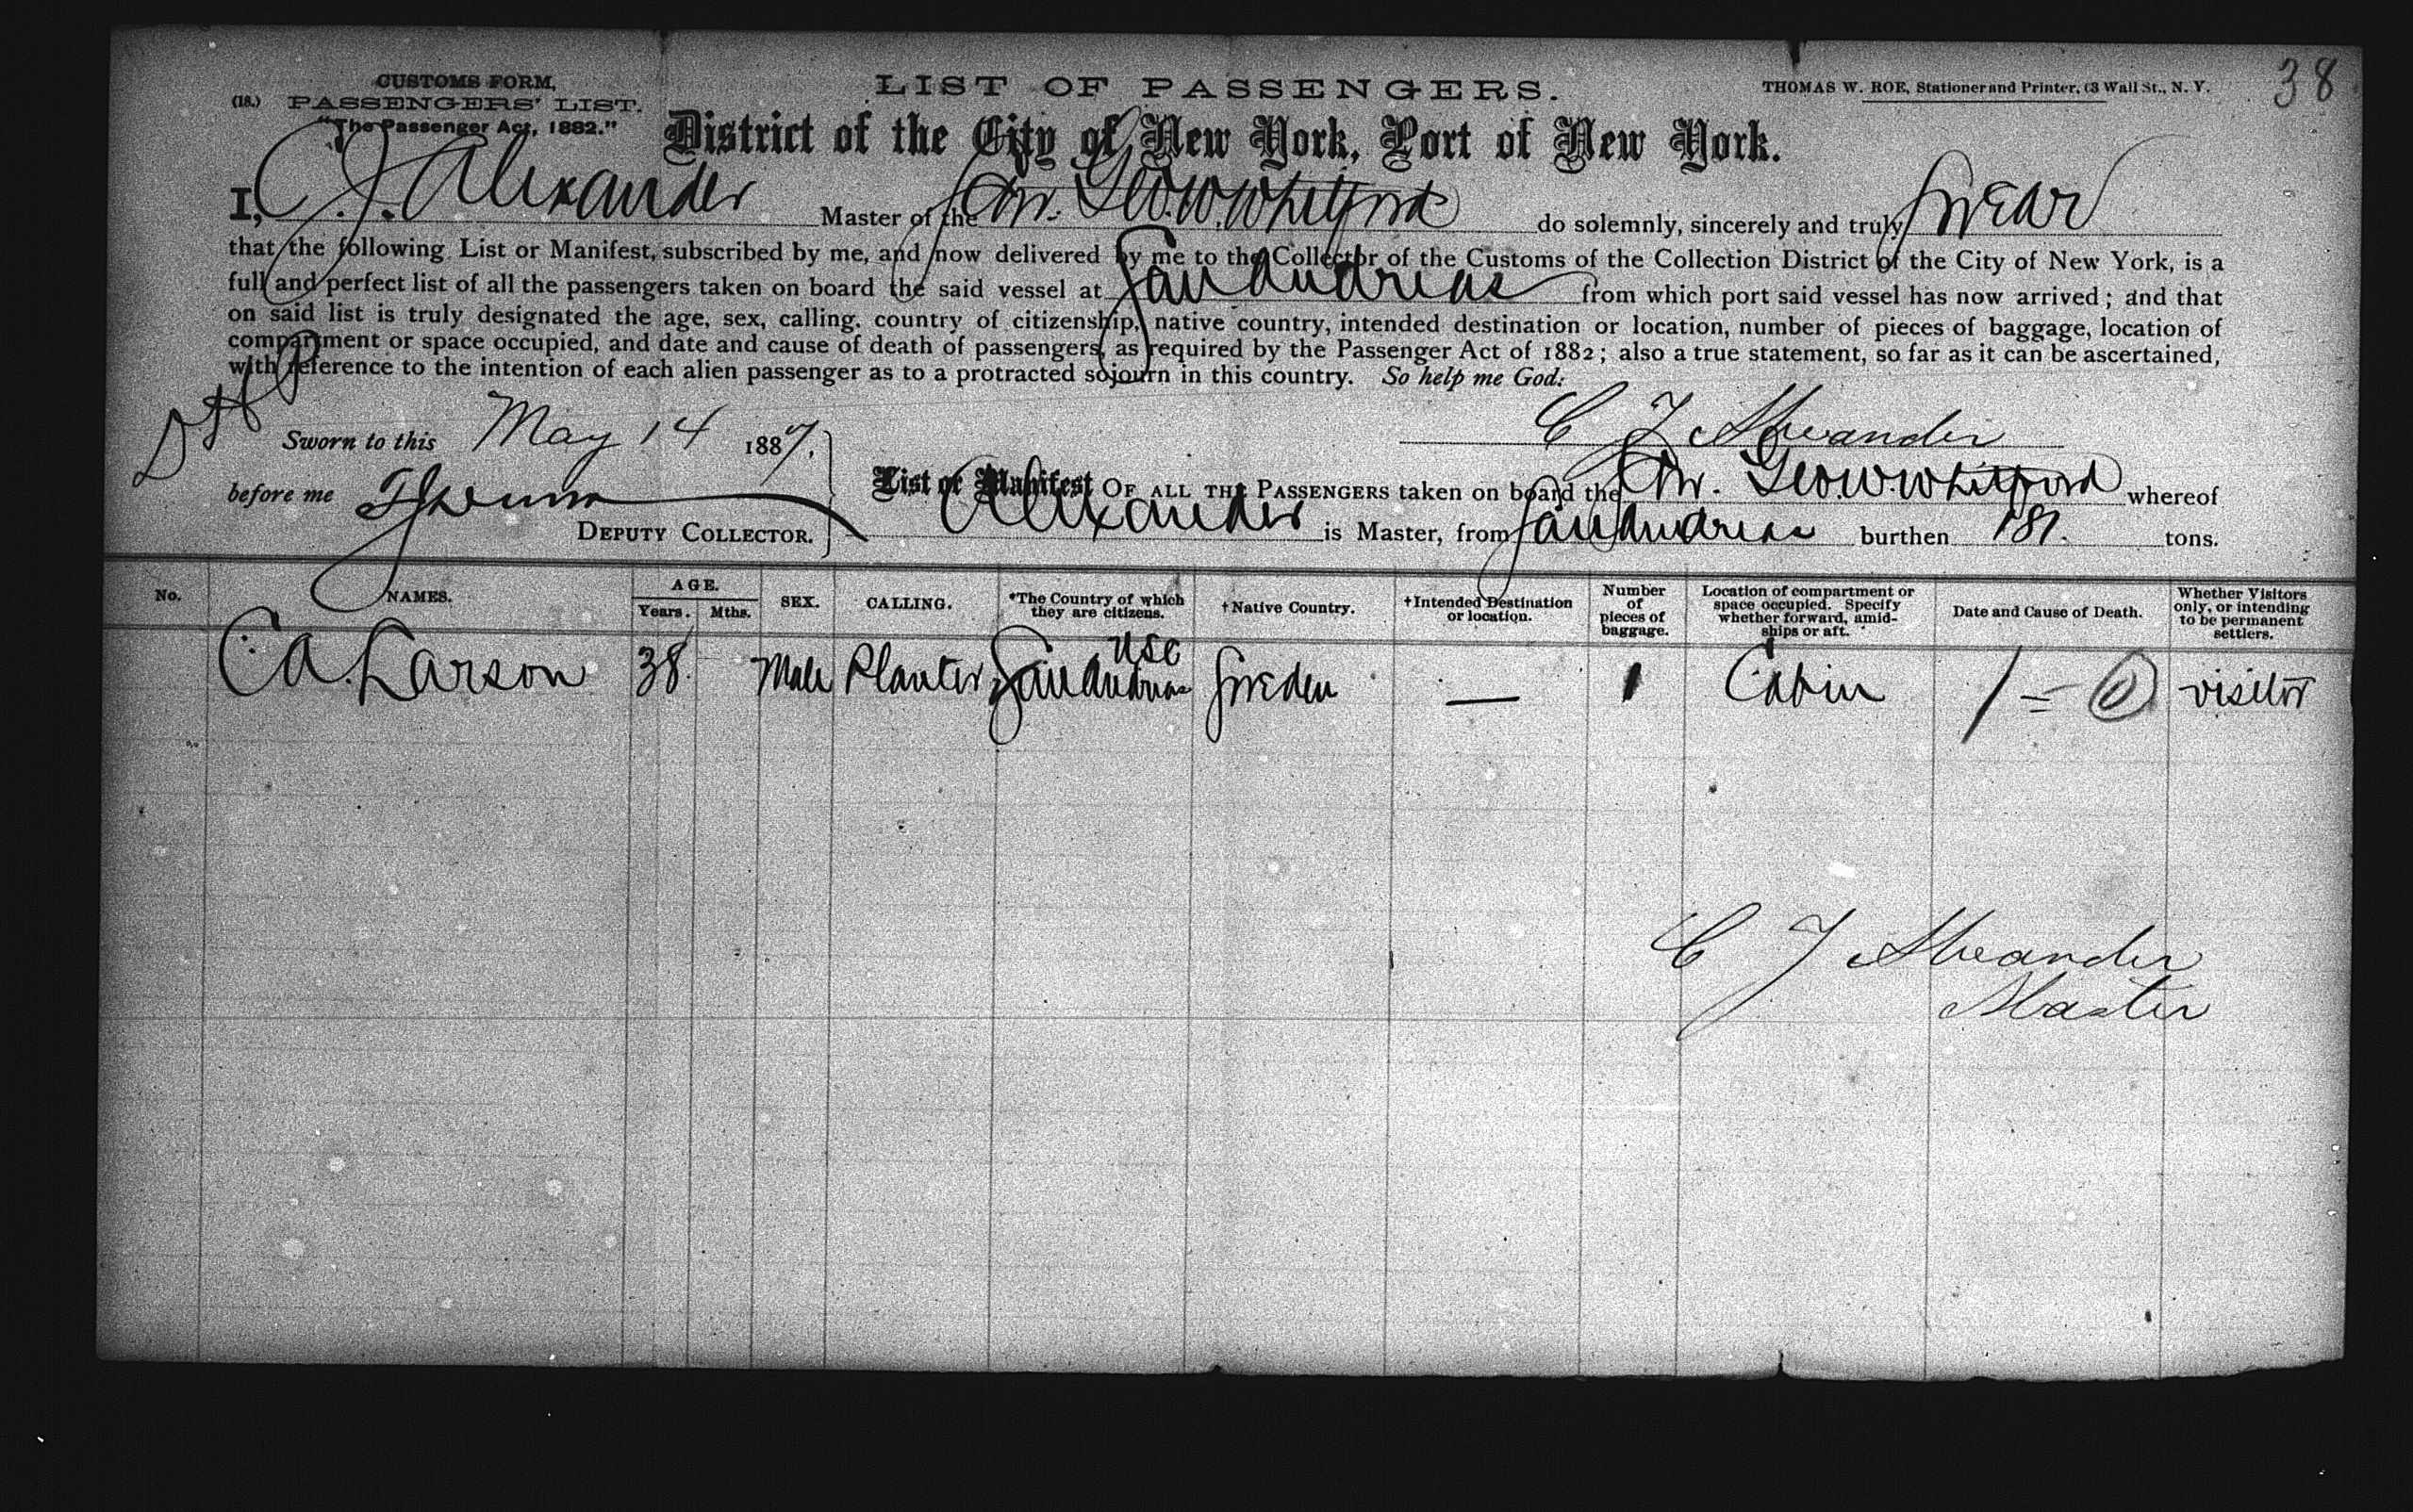 CUSTOMS FORM,
(18.) PASSENGERS' LIST.
"The Passenger Act, 1882."
LIST OF PASSENGERS.
THOMAS W. ROE, Stationer and Printer, 63 Wall St., N. Y.
38
District of the City of New York, Port of New York.
I, C. J. Alexander Master of the Geo. W. Whitford do solemnly, sincerely and truly swear
that the following List or Manifest, subscribed by me, and now delivered by me to the Collector of the Customs of the Collection District of the City of New York, is a
full and perfect list of all the passengers taken on board the said vessel at San Andreas from which port said vessel has now arrived; and that
on said list is truly designated the age, sex, calling, country of citizenship, native country, intended destination or location, number of pieces of baggage, location of
compartment or space occupied, and date and cause of death of passengers, as required by the Passenger Act of 1882; also a true statement, so far as it can be ascertained,
with reference to the intention of each alien passenger as to a protracted sojourn in this country. So help me God:
Sworn to this May 14 1887,
C J Alexander
before me
DEPUTY COLLECTOR.
List or Manifest OF ALL THE PASSENGERS taken on board the Geo. W. Whitford whereof
Alexander is Master, from San Andreas burthen 181. tons.
No. NAMES. AGE. Years. Mths. SEX. CALLING. *The Country of which they are citizens. †Native Country. †Intended Destination or location. Number of pieces of baggage. Location of compartment or space occupied. Specify whether forward, amidships or aft. Date and Cause of Death. Whether Visitors only, or intending to be permanent settlers.
USC
C A. Larson 38 Male Planter San Andreas Sweden — 1 Cabin visitor
C J Alexander
Master